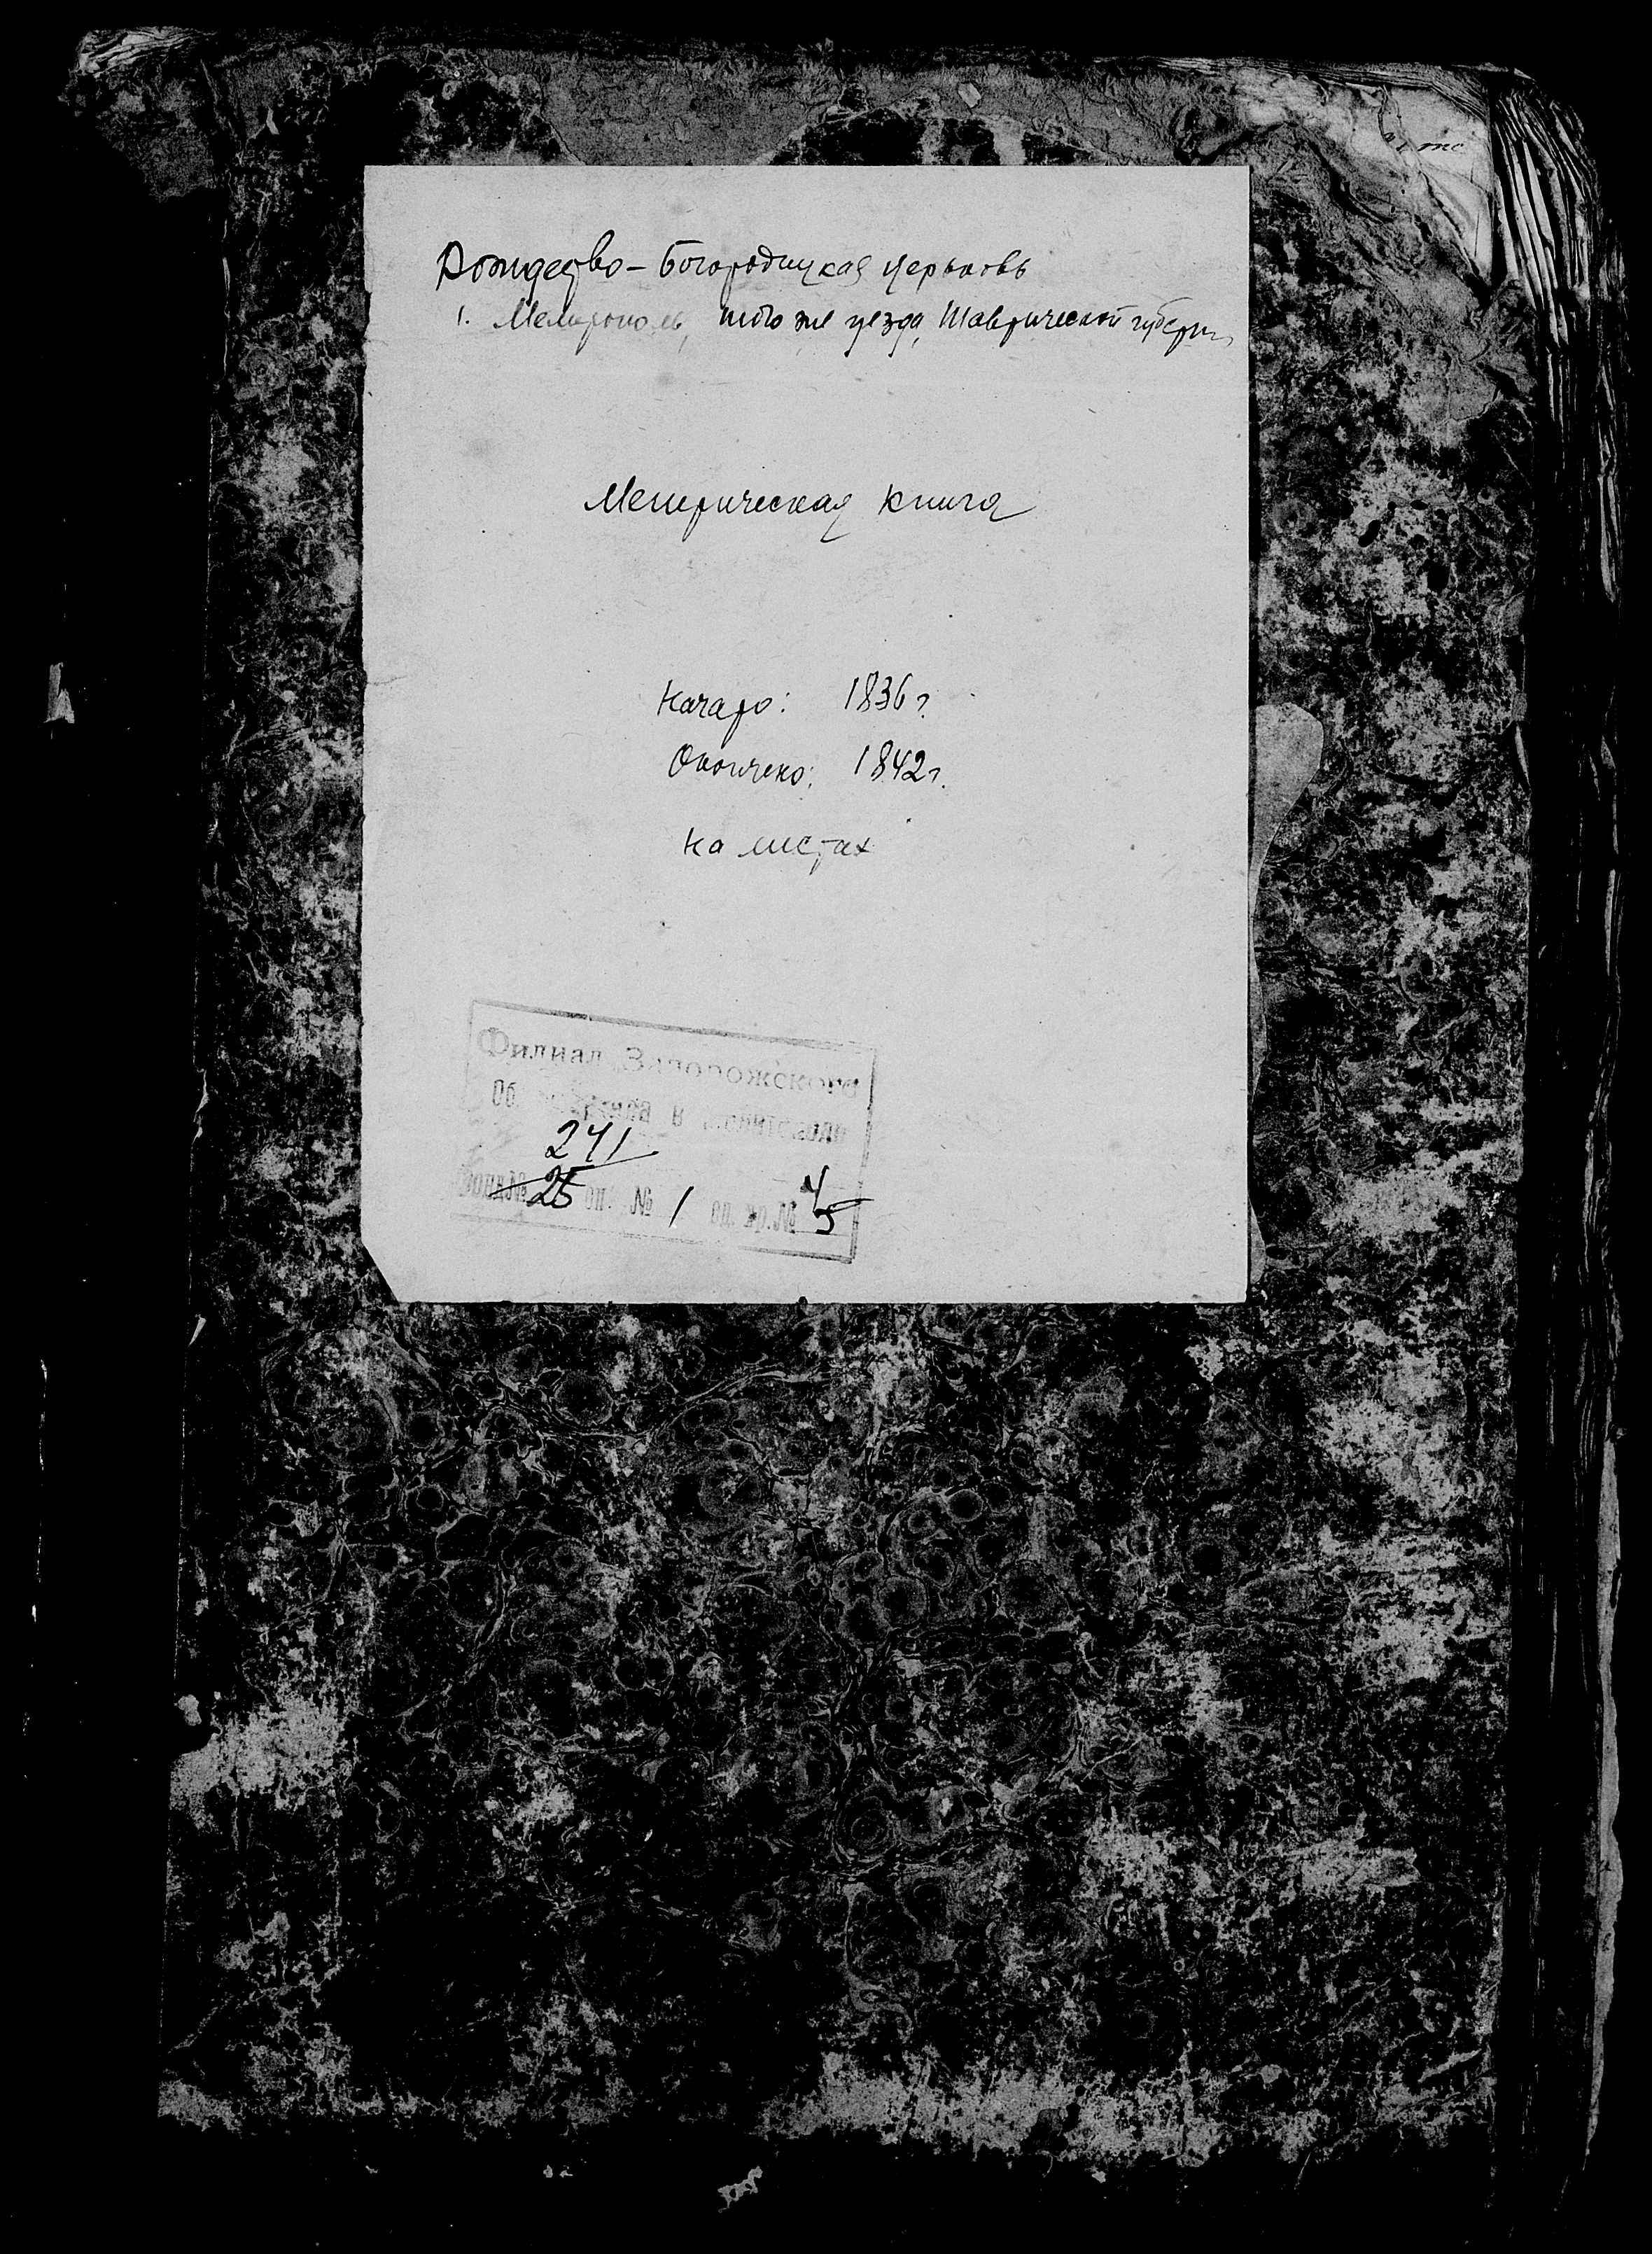 Рождество-Богородицкая церковь
г. Мелитополь, того же уезда, Таврической губернии
Метрическая книга
Начато: 1836 г.
Окончено: 1842 г.
на листах
Филиал Запорожского
Об. в
241
Фонд № 25 оп. № 1 ед. хр. № 4 5